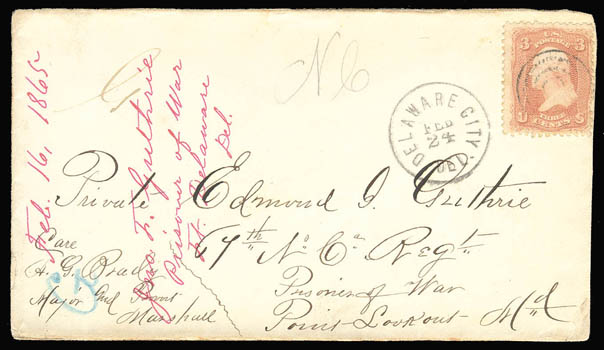 N C
3 U.S. 3
POSTAGE
U THREE CENTS S
DELAWARE CITY
FEB
24
DEL
Feb. 16, 1865
Geo. F. Guthrie
Prisoner of War
Ft. Delaware
Del.
Private Edmond J. Guthrie
47th No Ca Regt
Prisoner of War
Point Lookout Md
Care
A. G. Brady
Major and Provost
Marshall